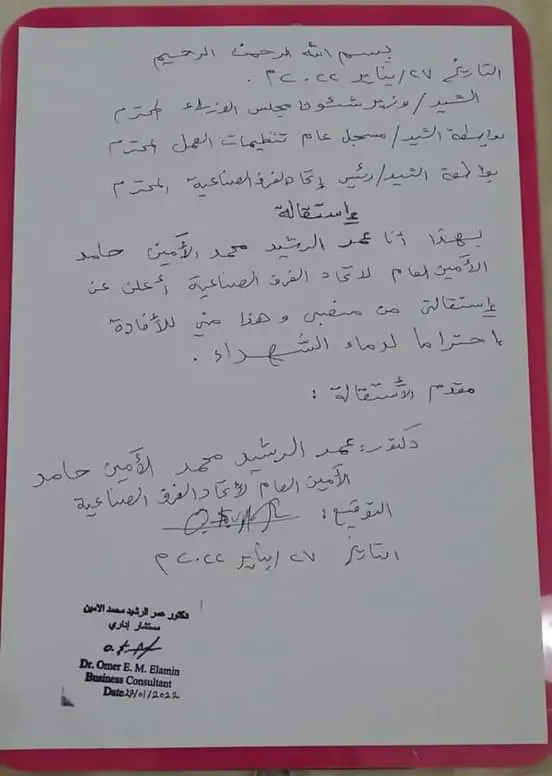 بسم الله الرحمن الرحيم
التاريخ ٢٧/يناير ٢٠٢٢م.
السيد/ وزير شئون مجلس الوزراء المحترم
بواسطة السيد/ مسجل عام تنظيمات العمل المحترم
بواسطة السيد/ رئيس إتحاد الغرف الصناعية المحترم
إستقالة
بهذا أنا عمر الرشيد محمد الأمين حامد
الأمين العام لاتحاد الغرف الصناعية أعلن عن
إستقالتي من منصبي وهذا مني للأفادة
احتراما لدماء الشهداء.
مقدم الأستقالة:
دكتور: عمر الرشيد محمد الأمين حامد
الأمين العام لأتحاد الغرف الصناعية
التوقيع:
التاريخ ٢٧/يناير ٢٠٢٢م
دكتور عمر الرشيد محمد الامين
مستشار إداري
Dr. Omer E. M. Elamin
Business Consultant
Date 27/01/2022